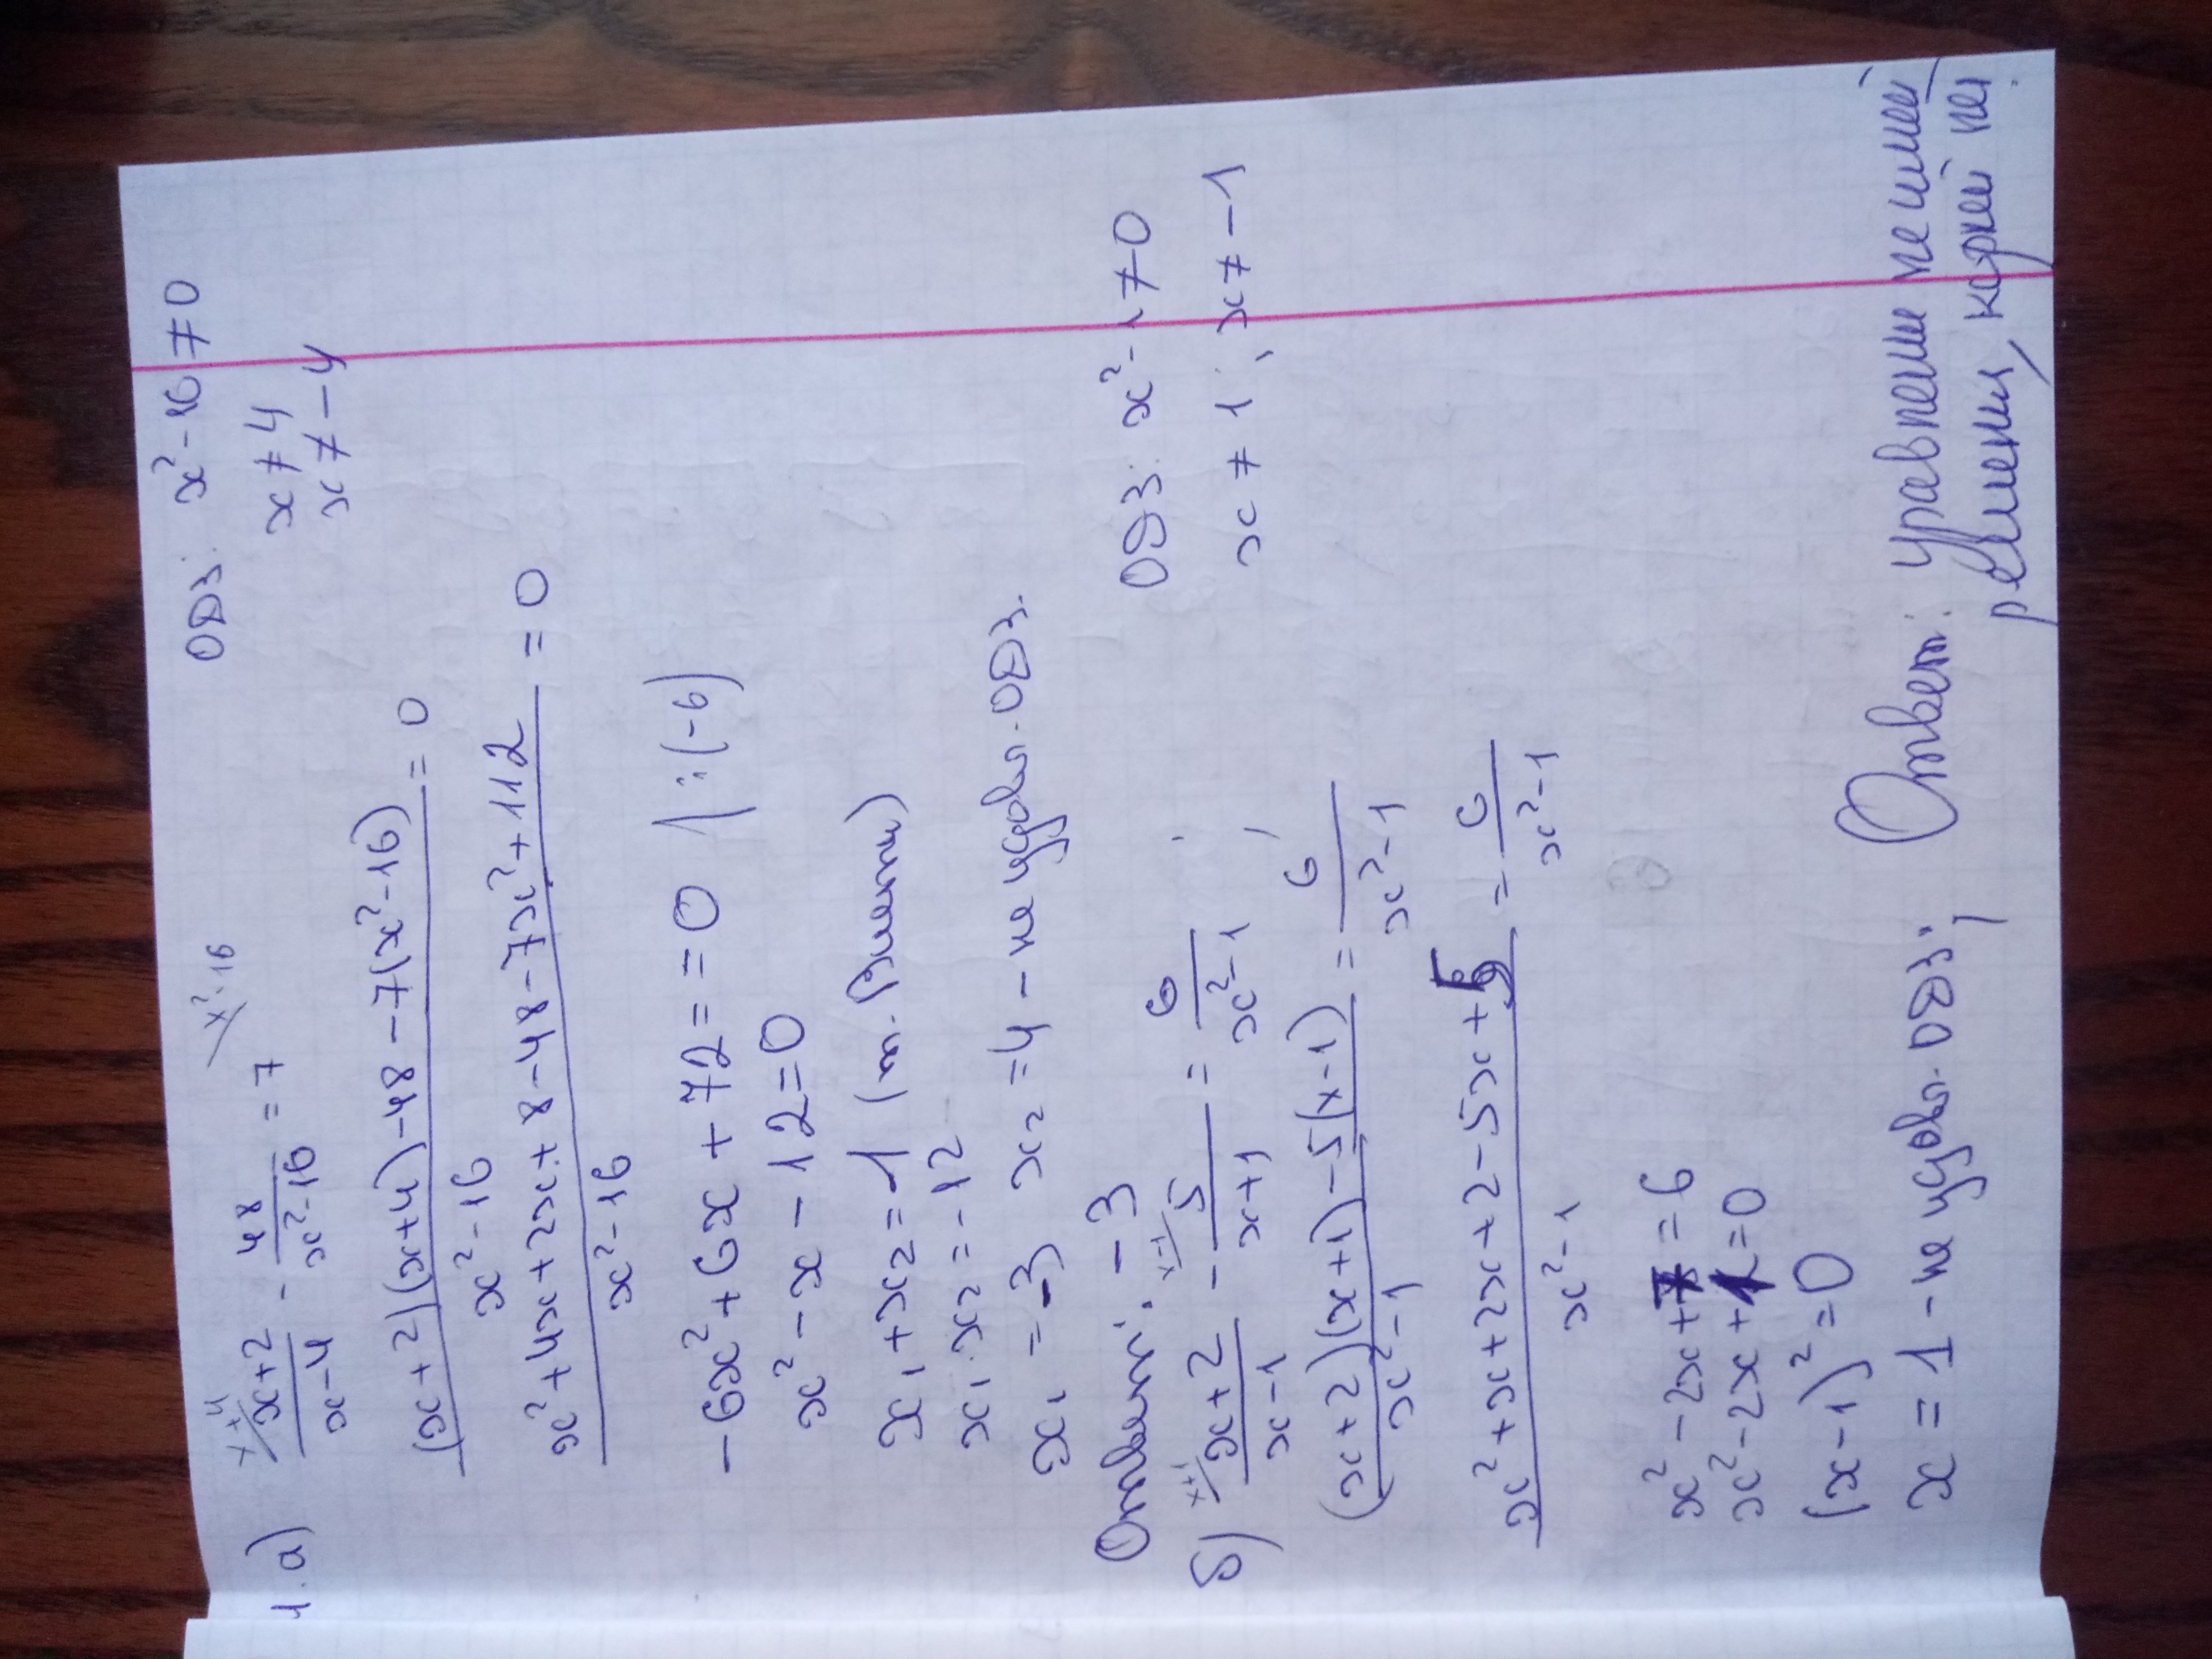 1.a) x+4/ (x+2)/(x-4) - 48/(x²-16) = 7 /x²-16 ОДЗ: x²-16≠0
x≠4
x≠-4
((x+2)(x+4)-48-7(x²-16))/(x²-16) = 0
(x²+4x+2x+8-48-7x²+112)/(x²-16) = 0
-6x²+6x+72=0 /:(-6)
x²-x-12=0
x₁+x₂=1 (т. Виета)
x₁·x₂=-12
x₁=-3 x₂=4 - не удовл. ОДЗ.
Ответ: -3
б) x+1/ (x+2)/(x-1) - x-1/ 5/(x+1) = 6/(x²-1) ОДЗ: x²-1≠0
x≠1; x≠-1
((x+2)(x+1)-5(x-1))/(x²-1) = 6/(x²-1)
(x²+x+2x+2-5x+5)/(x²-1) = 6/(x²-1)
x²-2x+7=6
x²-2x+1=0
(x-1)²=0
x=1 - не удовл. ОДЗ; Ответ: уравнение не имеет
решения, корней нет.